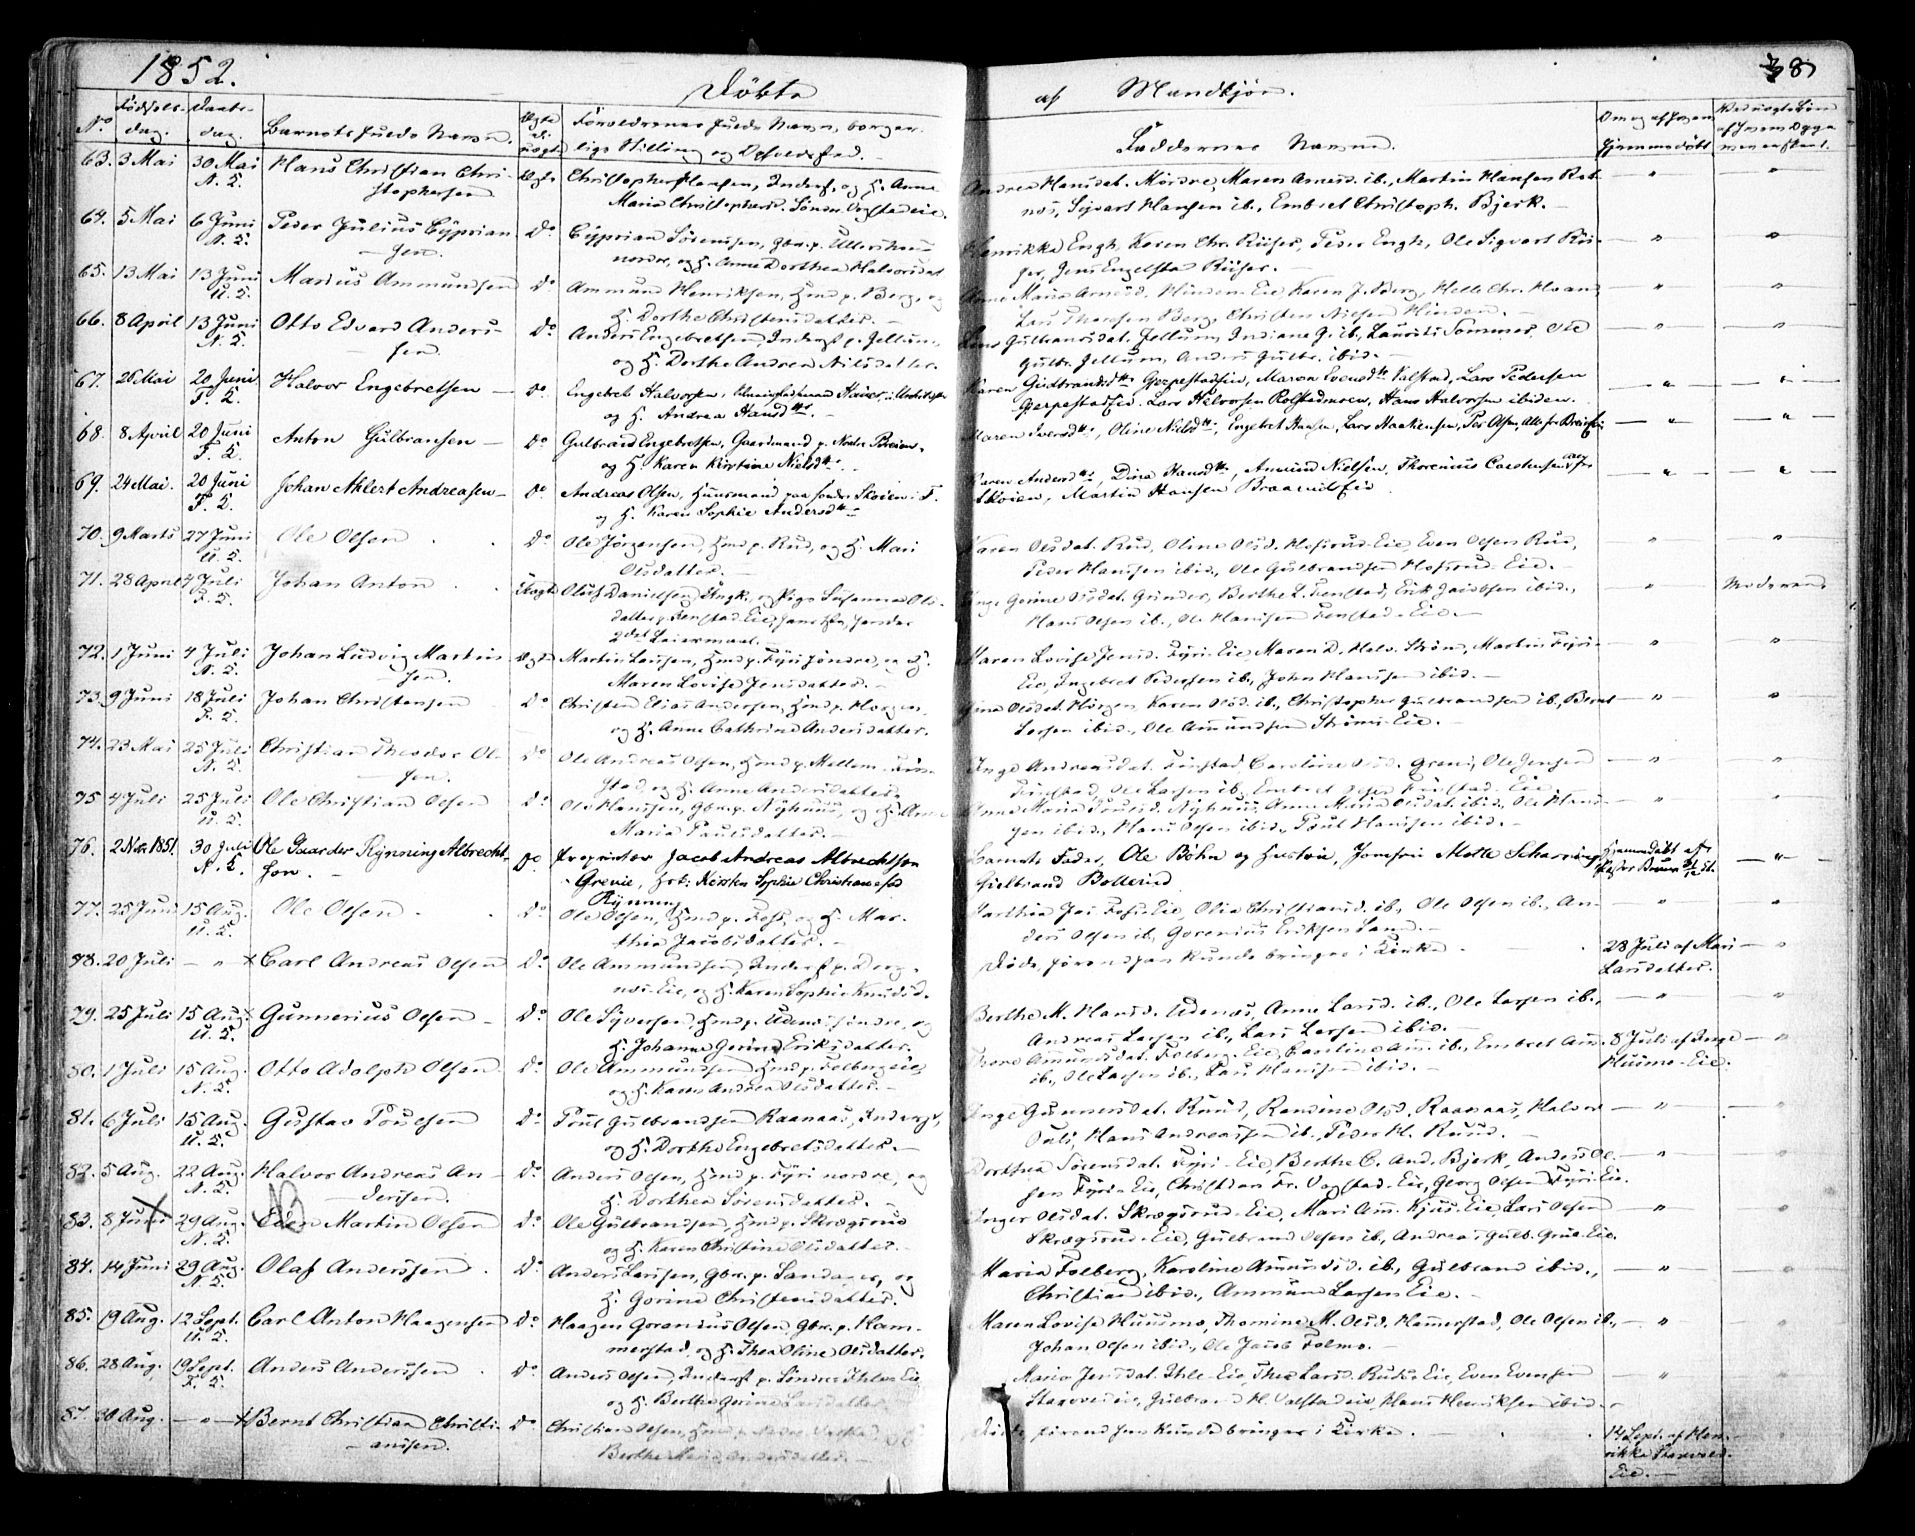 1852.
Döbte
af Mandkjøn.
38
No
Fødsels-
dag.
Daabs-
dag.
Barnets fulde Navn.
Ægte
el.
uægte
Forældrenes fulde Navn, borger-
lige Stilling og Opholdssted.
Faddernes Navne.
Om og af hvem
hjemmedøbt
63. 3 Mai 30 Mai Hans Christian Chri- Ægte Christopher Hansen, Inderst, og H. Anne
N. K. stophersen Maria Christophersd. Søndre Vogstadeie.
Andrea Hansdat. Mørdre, Maren Arnesd. ib., Martin Hansen
Sigvart Hansen ib., Embret Christoph. Bjerk. — " "
64. 5 Mai 6 Juni Peder Julius Cyprian- Do Cyprian Sørensen, Gbr. p. Ullerikens
N. K. sen. nordre, og H. Anne Dorthea Halvorsdat
Henrikke Engh, Karen Chr. Riiser, Peder Engh, Ole Sigvart Rii-
ser, Jens Engelstad Riiser. — " "
65. 13 Mai 13 Juni Marius Ammundsen Do Ammund Henriksen, Hmd p. Berg, og
U. K. H. Dorthe Christensdatter. —
Anne Maria Arnesd. Hinden-Eie, Karen J. Berg, Helle Chr.
Lars Thoresen Berg, Christen Nielsen Hinden. — " "
66. 8 April 13 Juni Otto Edvard Anders- Do Anders Engebretsen, Inderst p. Jellum,
N. K. sen. og H. Dorthe Andrea Nilsdatter.
Gulbransdat. Jellum, Indiane G. ib., Laurits Sommer, Ole
Gulbr. Jellum, Anders Gulbr. ibid. — " "
67. 26 Mai 20 Juni Halvor Engebretsen — Do Engebret Halvorsen,
F. K. og H. Andrea Hansdtr. —
Karen Gudbrandsdtr Gerpestadeie, Maren Evensdtr Valstad, Lars Pedersen
Gerpestadeie, Lars Halvorsen Rolstadmoen, Hans Halvorsen ibidem. — " "
68. 8 April 20 Juni Anton Gulbransen — Do Gulbrand Engebretsen, Gaardmand p. Nedre Breien,
F. K. og H. Karen Kirstine Nielsdtr.
Maren Iversdtr, Oline Nielsdtr, Engebret Hansen, Lars Haakensen, Per Olsen, Alle fra Breien — " "
69. 24 Mai. 20 Juni Johan Ahlert Andreasen — Do Andreas Olsen, Huusmand paa søndre Skoien i F.
F. K. og H. Karen Sophie Andersdtr
Karen Andersdtr, Dina Hansdtr, Amund Nielsen, Thorenius Carstensen
Skoien, Martin Hansen Braanaseie. — " "
70. 9 Marts 27 Juni Ole Olsen Do Ole Jørgensen, Hmd p. Rud, og H. Mari
U. K. Olsdatter. —
Karen Olsdat. Rud, Oline Olsd. Hofsrud-Eie, Even Olsen Rud,
Peder Hansen ibid., Ole Gulbrandsen Hofsrud-Eie. — " "
71. 28 April 4 Juli Johan Anton Uægte Oluf Danielsen Ungk., og Pige Susanna Ols-
F. K. datter, Fenstad-Eie,
2det Leiermaal. —
Inge Gorine Olsdat. Grinder, Berthe L. Fenstad, Erik Jacobsen ibid.,
Hans Olsen ib., Ole Hansen Fenstad-Eie. — " Moderen
72. 1 Juni 4 Juli Johan Ludvig Martin- Ægte Martin Larsen, Hmd p. Fyri søndre, og H.
N. K. sen. Maren Lovise Jensdatter. —
Karen Lovise Jensd. Fyri-Eie, Maren D. Halv. Strøm, Martin Fyri-
Eie, Ingebret Pedersen ib., John Hansen ibid. — " "
73. 9 Juni 18 Juli Johan Christensen Do Christen Elias Andersen, Hmd p. Horgen,
F. K. og H. Anne Cathrine Andersdatter.
Olsdat. Horgen, Karen Olsd. ib., Christopher Gulbrandsen ib., Bernt
Larsen ibid., Ole Ammundsen Strøms-Eie. — " "
74. 23 Mai 25 Juli Christian Theodor Ol- Do Ole Andreas Olsen, Hmd p. Mellem-Fin-
N. K. sen. stad, og H. Anne Andersdatter.
Inge Andreasdat. Finstad, Caroline Olsd. Greni, Ole Jensen
Finstad, Ole Larsen ib., Embret Olsen Finstad-Eie. — " "
75 4 Juli 25 Juli Ole Christian Olsen Do Ole Hansen, Gbr. p. Nyhuus, og H. Anne
U. K. Maria Paulsdatter. —
Anne Maria Poulsd. Nyhuus, Anne Maria Olsdat. ibid., Ole Han-
sen ibid., Hans Olsen ibid., Poul Hansen ibid. — " "
76. 2 Nov. 1851 30 Juli Ole Gaarder Rynning Albrecht- Do Proprietær Jacob Andreas Albrechtson
N. K. son. — Grevie, Hst: Kirsten Sophie Christiane født
Rynning
Barnets Fader, Ole Bøhn og Hustru, Jomfru Mette Scharning,
Gulbrand Bollerud
Hjemmedøbt af
Pastor Bruun — " —
77. 25 Juni 15 Aug. Ole Olsen. Do Ole Olsen, Hmd p. Foss, og H. Mar-
U. K. thia Jacobsdatter. —
Marthia Jac. Foss-Eie, Olia Christiansd. ib., Ole Olsen ib., An-
ders Olsen ib., Gorenius Eriksen Sand. — " "
78. 20 Juli — " — × Carl Andreas Olsen Do Ole Ammundsen, Inderst p. Berg-
nes-Eie, og H. Karen Sophie Knudsd.
Døde, førend han kunde bringes i Kirke
28 Juli af Mari
Larsdatter. — "
79. 25 Juli 15 Aug. Gunnerius Olsen — Do Ole Syversen, Hmd p. Udnes søndre, og
U. K. H. Johanne Gorine Eriksdatter.
Berthe M. Hansd. Udenæs, Anne Larsd. ib., Ole Larsen ib.,
Andreas Larsen ib., Lars Larsen ibid. — " "
80. 1 Juli 15 Aug. Otto Adolph Olsen Do Ole Ammundsen Hmd p. Folbergeie
N. K. og H. Karen Andrea Olsdatter. —
Amundsdat. Folberg-Eie, Caroline Am. ib., Embret Am.
ib., Ole Larsen ib., Lars Hansen ibid. —
8 Juli af Inge
Husmo-Eie. — "
81. 6 Juli 15 Aug. Gustav Poulsen Do Poul Gulbrandsen Raanaas, Inderst,
U. K. og H. Dorthe Engebretsdatter. —
Inge Gunnersdat. Ruud, Randine Olsd. Raanaas, Halvor
Pouls, Hans Andreassen ib., Peder H. Ruud. — " "
82. 5 Aug. 22 Aug. Halvor Andreas An- Do Anders Olsen, Hmd p. Fyri nordre, og
N. K. dersen. H. Dorthea Sørensdatter. —
Dorthea Sørensdat. Fyri-Eie, Berthe C. And. Bjerk, Anders Ol-
sen Fyri-Eie, Christian Fr. Vogstad-Eie, Georg Olsen Fyri-Eie. — " "
83. 8 Juni 29 Aug. Edvin Martin Olsen Do Ole Gulbrandsen, Hmd p. Skrægsrud
N. K. og H. Karen Christine Olsdatter. —
Inger Olsdat. Skrægsrud-Eie, Mari Am. Kjus-Eie, Lars Olsen
Skrægsrud-Eie, Gulbrand Olsen ib., Andreas Gulb. Grue-Eie. — " "
84. 14 Juni 29 Aug. Olaf Andersen Do Anders Larsen, Gbr. p. Sandager, og
N. K. H. Gorine Christensdatter.
Maria Folberg, Karoline Amundsd. ib., Gulbrand ibid.,
Christian ibid., Ammund Larsen Eie. — " "
85. 19 Aug. 12 Sept. Carl Anton Haagensen Do Haagen Goranius Olsen, Gbr. p. Ham-
U. K. merstad, og H. Thea Oline Olsdatter.
Maren Lovise Huusmo, Thomine M. Olsd. Hamerstad, Ole Olsen ib.,
Johan Olsen ibid., Ole Jacob Folmo. — " "
86. 28 Aug. 19 Sept. Anders Andersen Do Anders Olsen, Inderst p. Søndre Ihle Eie
F. K. og H. Berthe Gorine Larsdatter
Maria Jensdat. Ihle-Eie, Thea Larsd. Ruds-Eie, Even Evensen
Starveieie, Gulbrand H. Valstadeie, Hans Henriksen ibid. — " "
87. 30 Aug. — " — × Bernt Christian Christi- Do Christian Olsen, Hmd p. Nedre
ansen. Berthe Maria Andersdatter. —
Døde, førend han kunde bringes i Kirke.
14 Sept. af Hen-
rikke Starveld-
Eie. —